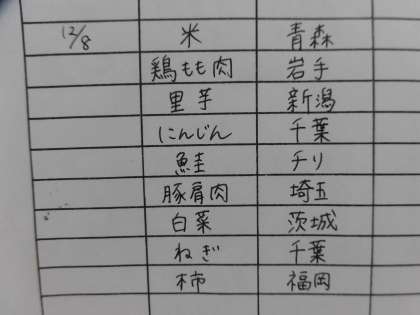 12/8 米 青森
鶏もも肉 岩手
里芋 新潟
にんじん 千葉
鮭 チリ
豚肩肉 埼玉
白菜 茨城
ねぎ 千葉
柿 福岡